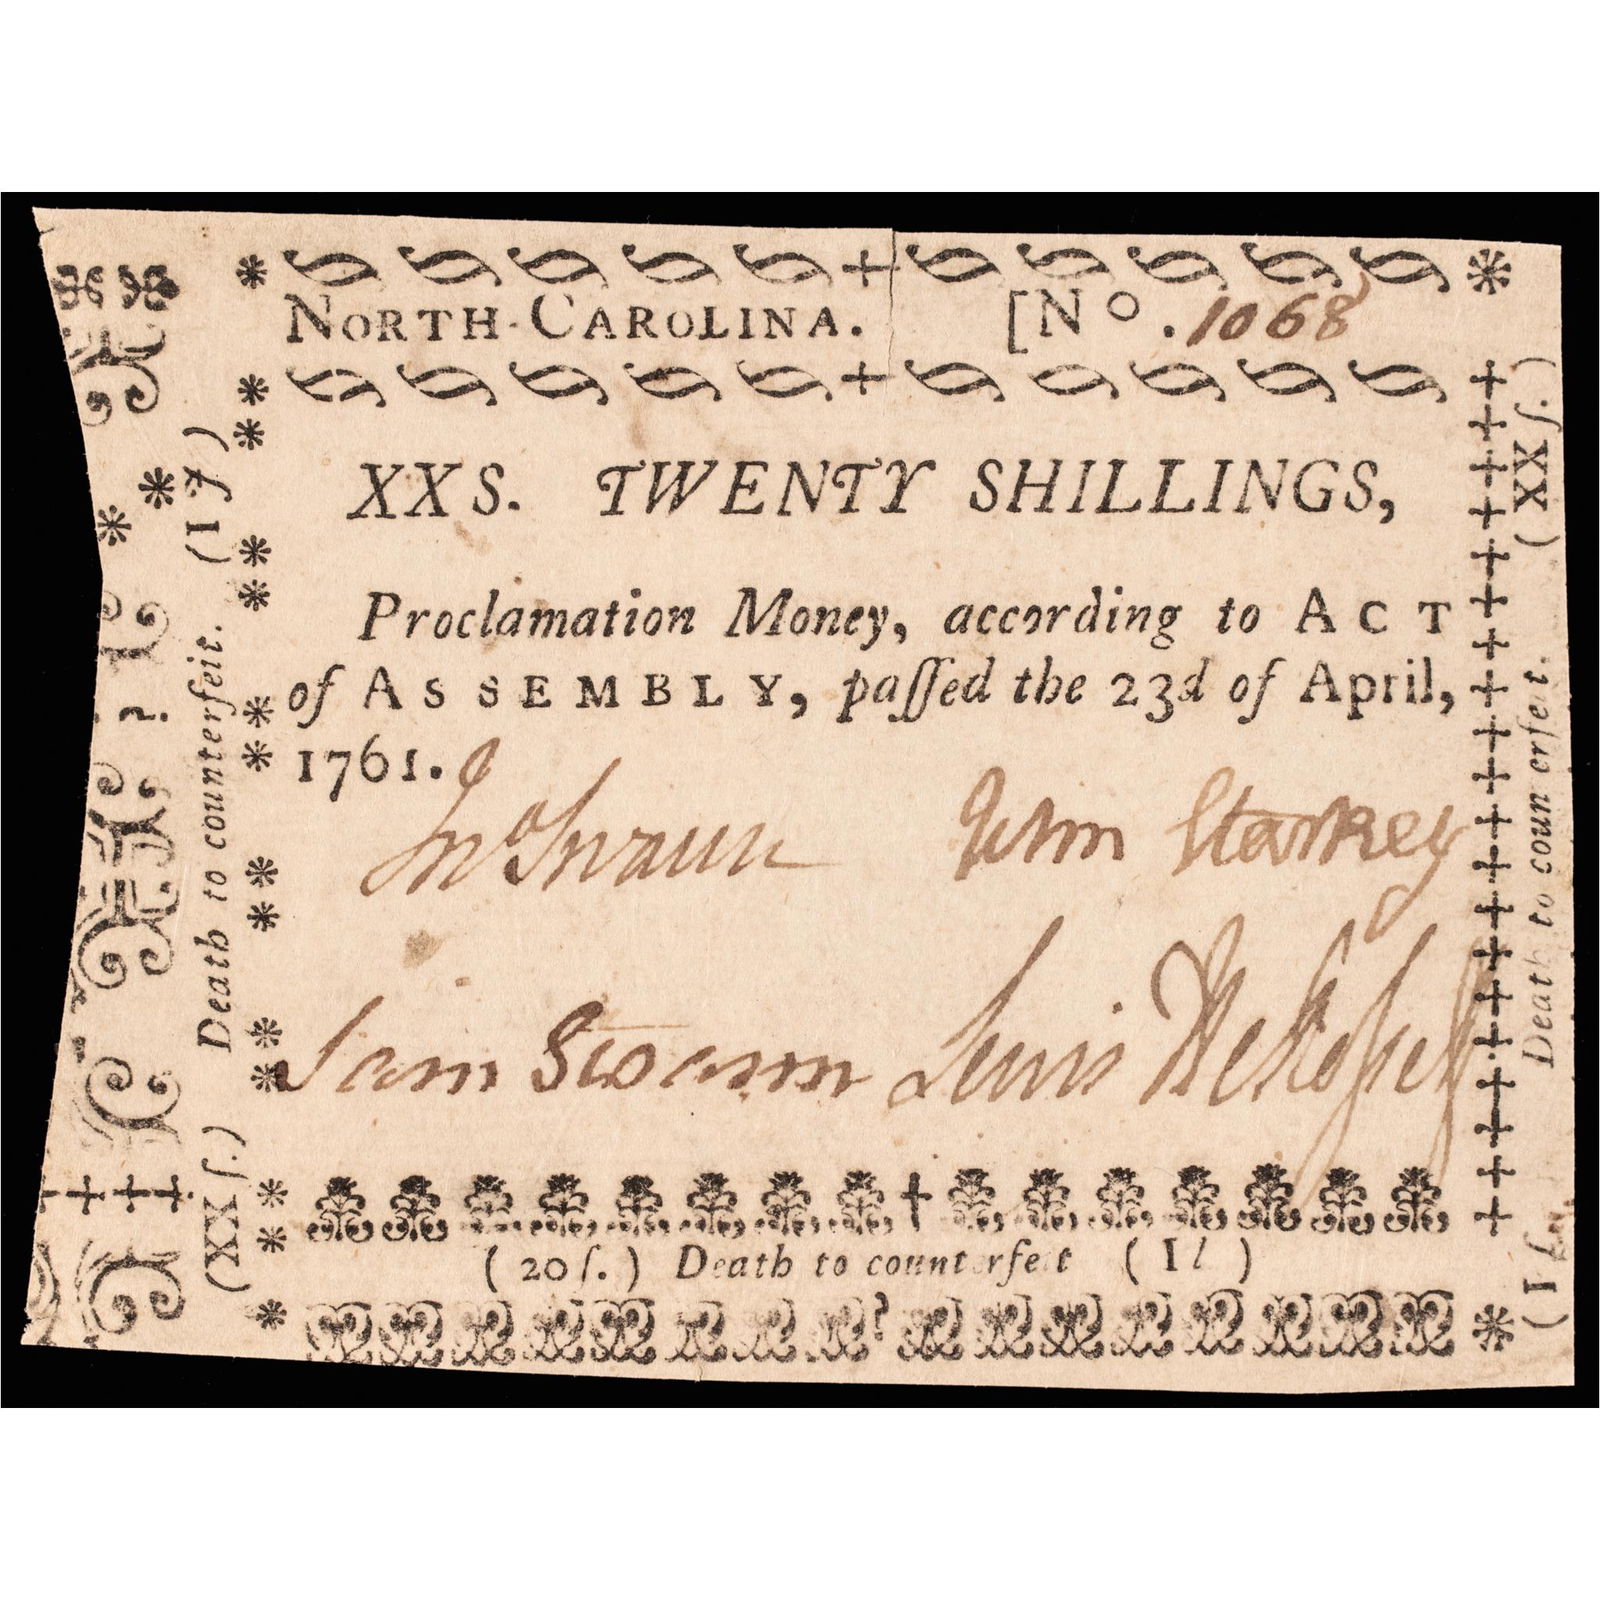 NORTH-CAROLINA. [No. 1068
XXS. TWENTY SHILLINGS,
Proclamation Money, according to ACT
of ASSEMBLY, paſſed the 23d of April,
1761.
Jno Swann John Starkey
Sam Swann Lewis DeRoſſett
(20ſ.) Death to counterfeit (1l)
(XXſ.) Death to counterfeit. (I £)
(I £ Death to counterfeit. (XXſ.)